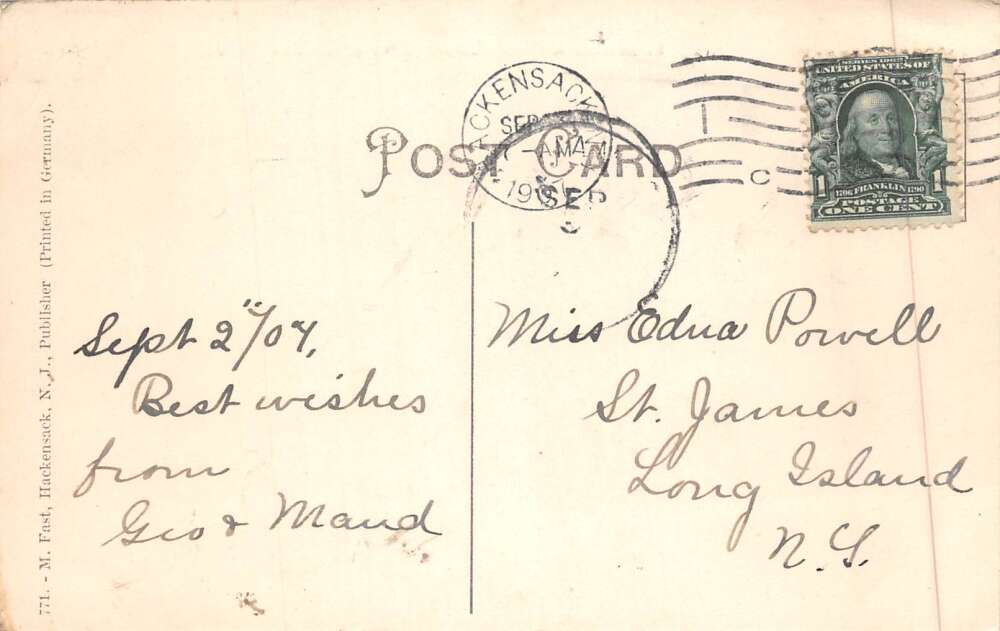 771. - M. Fast, Hackensack, N. J., Publisher (Printed in Germany).
POST CARD
HACKENSACK
SEP
7 - AM
190
SEP
SERIES 1902
UNITED STATES OF
AMERICA
1
1
1706 FRANKLIN 1790
POSTAGE
ONE CENT
C
Sept 2"/07,
Best wishes
from
Geo & Maud
Miss Edna Powell
St. James
Long Island
N.Y.